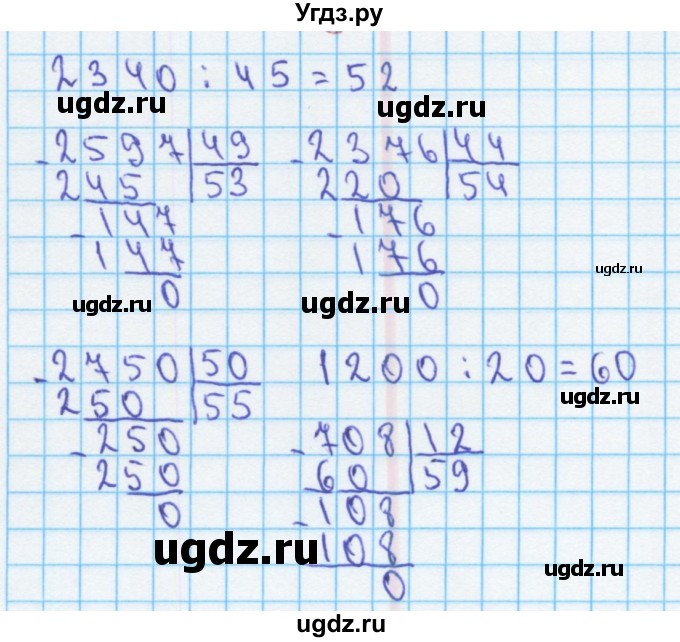 Угдз.ру
2340 : 45 = 52
ugdz.ru
ugdz.ru
- 2597 | 49
245 | 53
- 147
147
0
- 2376 | 44
220 | 54
- 176
176
0
ugdz.ru
ugdz.ru
ugdz.ru
- 2750 | 50
250 | 55
- 250
250
0
1200 : 20 = 60
ugdz.ru
- 708 | 12
60 | 59
- 108
108
0
ugdz.ru
ugdz.ru
ugdz.ru